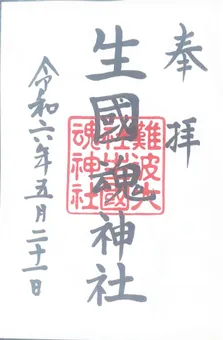 奉拝
生國魂神社
難波大社生國魂神社
令和六年五月二十一日